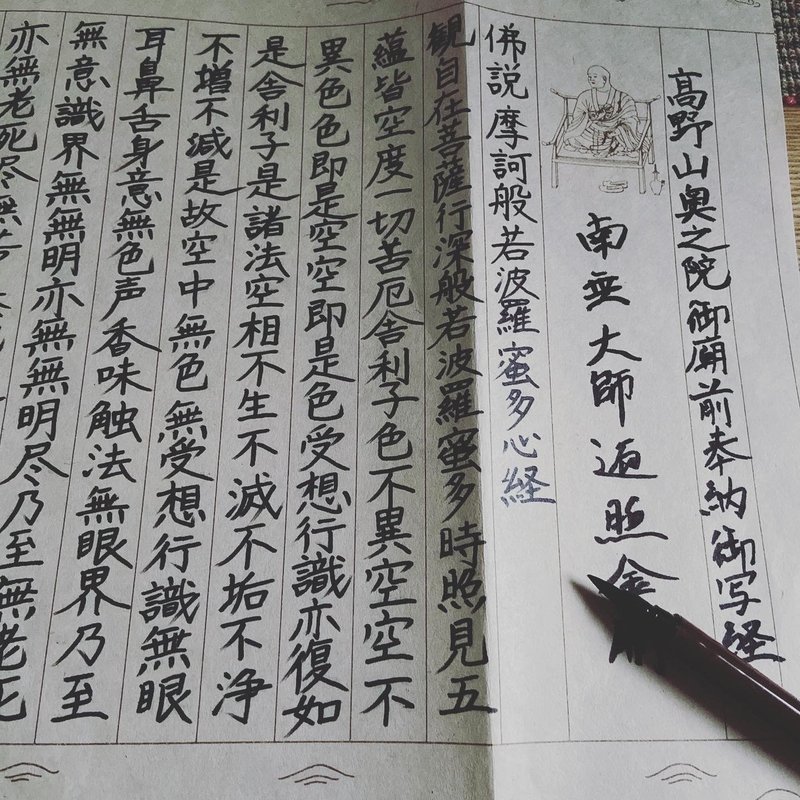 高野山奥之院御廟前奉納御写経
南無大師遍照金
佛説摩訶般若波羅蜜多心経
観自在菩薩行深般若波羅蜜多時照見五
蘊皆空度一切苦厄舎利子色不異空空不
異色色即是空空即是色受想行識亦復如
是舎利子是諸法空相不生不滅不垢不浄
不増不減是故空中無色無受想行識無眼
耳鼻舌身意無色声香味触法無眼界乃至
無意識界無無明亦無無明尽乃至無老死
亦無老死尽無苦